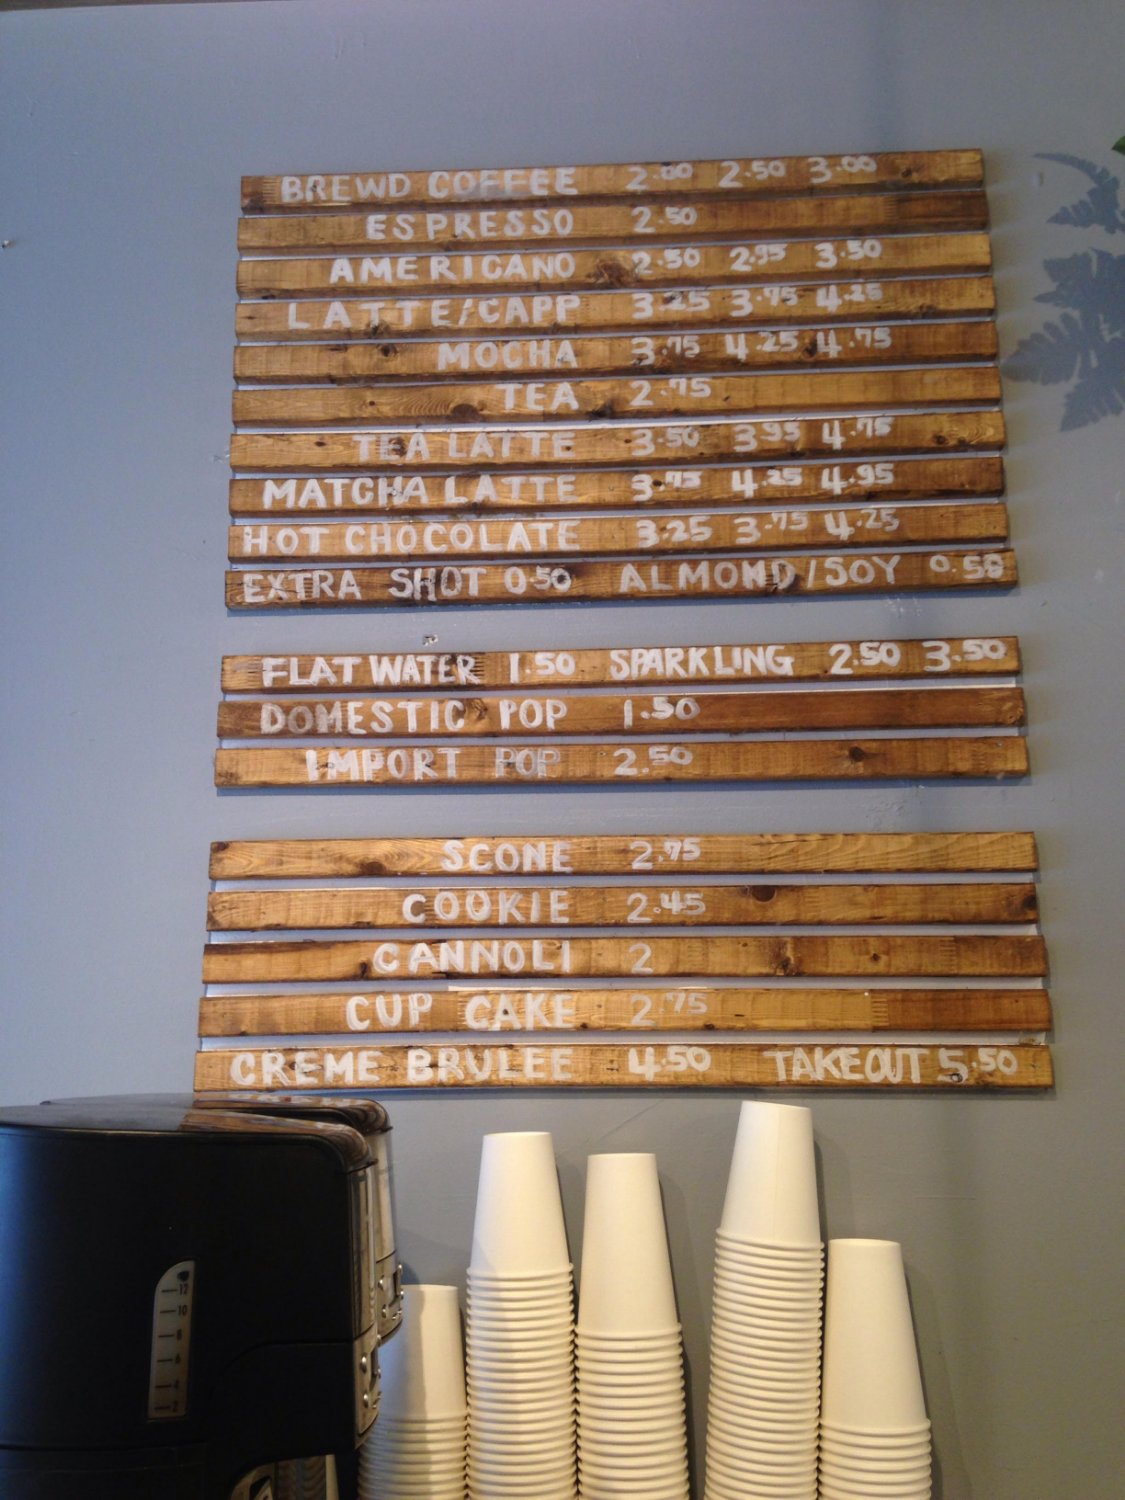 BREWD COFFEE 2.00 2.50 3.00
ESPRESSO 2.50
AMERICANO 2.50 2.95 3.50
LATTE/CAPP 3.25 3.75 4.25
MOCHA 3.75 4.25 4.75
TEA 2.75
TEA LATTE 3.50 3.95 4.75
MATCHA LATTE 3.75 4.25 4.95
HOT CHOCOLATE 3.25 3.75 4.25
EXTRA SHOT 0.50 ALMOND/SOY 0.50
FLAT WATER 1.50 SPARKLING 2.50 3.50
DOMESTIC POP 1.50
IMPORT POP 2.50
SCONE 2.75
COOKIE 2.45
CANNOLI 2
CUP CAKE 2.75
CREME BRULEE 4.50 TAKEOUT 5.50
12
10
8
6
4
2